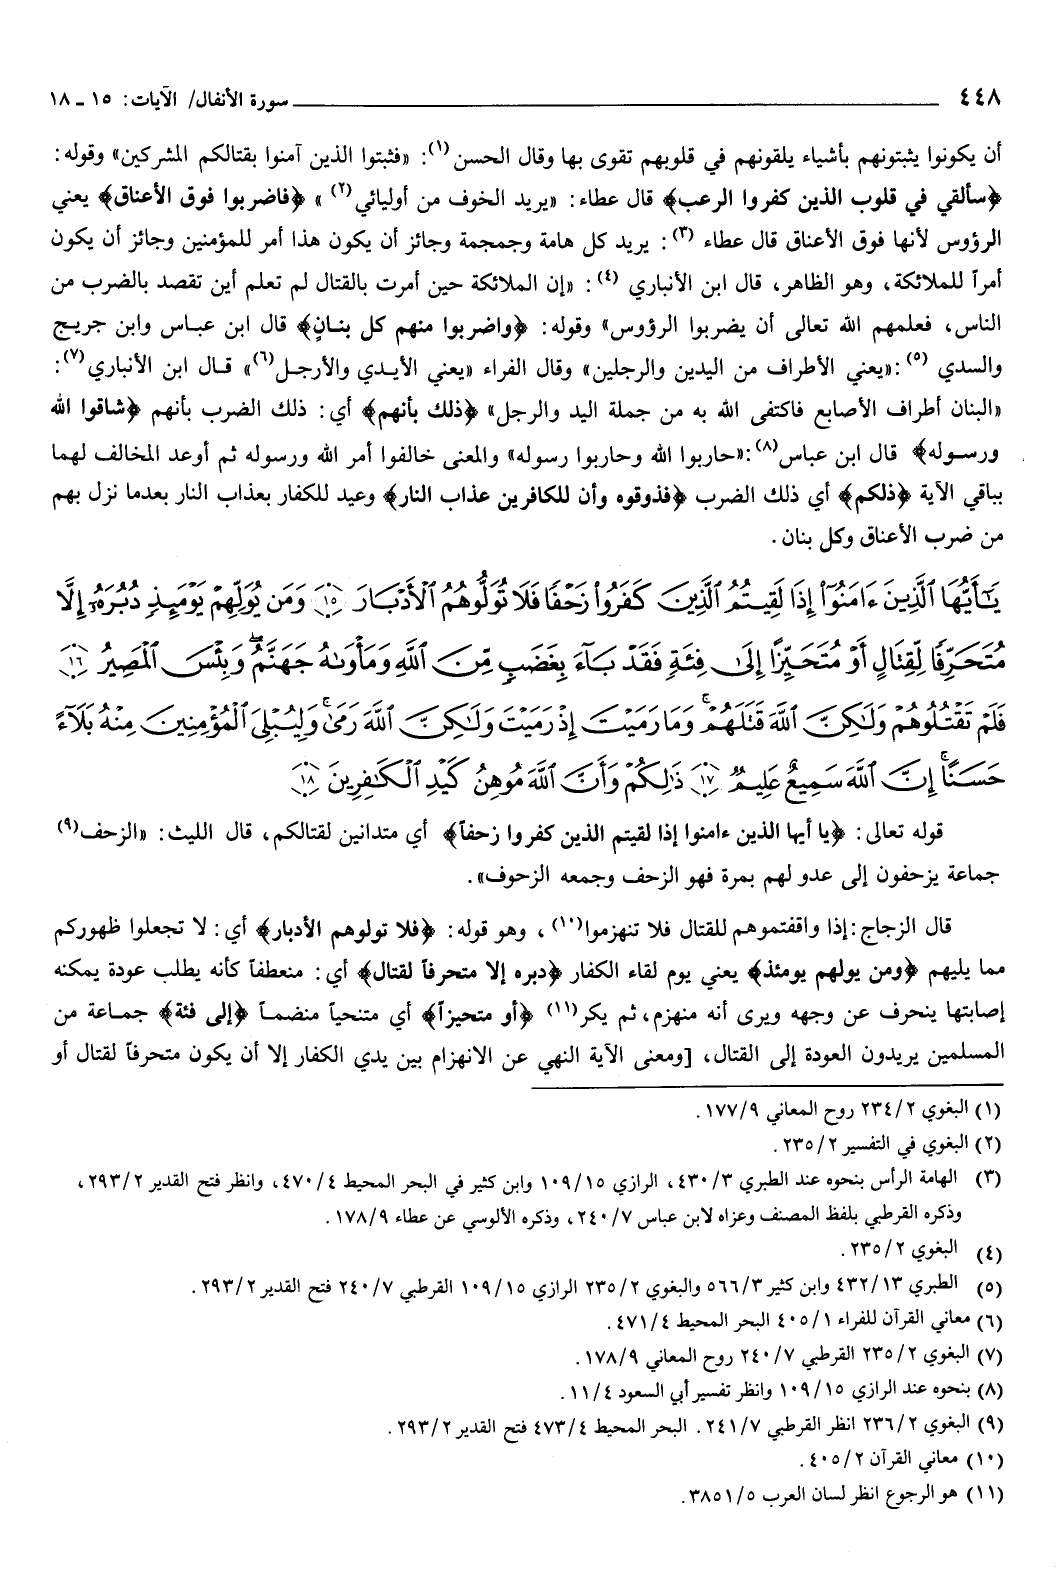 ٤٤٨ ــــــــــــــــــــــــــــــــــــــــ سورة الأنفال/ الآيات: ١٥ ـ ١٨
أن يكونوا يثبتونهم بأشياء يلقونهم في قلوبهم تقوى بها وقال الحسن(١): «فثبتوا الذين آمنوا بقتالكم المشركين» وقوله:
﴿سألقي في قلوب الذين كفروا الرعب﴾ قال عطاء: «يريد الخوف من أوليائي(٢)» ﴿فاضربوا فوق الأعناق﴾ يعني
الرؤوس لأنها فوق الأعناق قال عطاء (٣): يريد كل هامة وجمجمة وجائز أن يكون هذا أمر للمؤمنين وجائز أن يكون
أمراً للملائكة، وهو الظاهر، قال ابن الأنباري (٤): «إن الملائكة حين أمرت بالقتال لم تعلم أين تقصد بالضرب من
الناس، فعلمهم الله تعالى أن يضربوا الرؤوس» وقوله: ﴿واضربوا منهم كل بنـانٍ﴾ قال ابن عبـاس وابن جريـج
والسدي (٥):«يعني الأطراف من اليدين والرجلين» وقال الفراء «يعني الأيـدي والأرجـل(٦)» قـال ابن الأنباري(٧):
«البنان أطراف الأصابع فاكتفى الله به من جملة اليد والرجل» ﴿ذلك بأنهم﴾ أي: ذلك الضرب بأنهم ﴿شاقوا الله
ورسـوله﴾ قال ابن عباس(٨):«حاربوا الله وحاربوا رسوله» والمعنى خالفوا أمر الله ورسوله ثم أوعد المخالف لهما
بباقي الآية ﴿ذلكم﴾ أي ذلك الضرب ﴿فذوقوه وأن للكافرين عذاب النار﴾ وعيد للكفار بعذاب النار بعدما نزل بهم
من ضرب الأعناق وكل بنان.
يَـٰٓأَيُّهَا ٱلَّذِينَ ءَامَنُوٓا۟ إِذَا لَقِيتُمُ ٱلَّذِينَ كَفَرُوا۟ زَحْفًا فَلَا تُوَلُّوهُمُ ٱلْأَدْبَارَ ١٥ وَمَن يُوَلِّهِمْ يَوْمَئِذٍ دُبُرَهُۥٓ إِلَّا
مُتَحَرِّفًا لِّقِتَالٍ أَوْ مُتَحَيِّزًا إِلَىٰ فِئَةٍ فَقَدْ بَآءَ بِغَضَبٍ مِّنَ ٱللَّهِ وَمَأْوَىٰهُ جَهَنَّمُ ۖ وَبِئْسَ ٱلْمَصِيرُ ١٦
فَلَمْ تَقْتُلُوهُمْ وَلَـٰكِنَّ ٱللَّهَ قَتَلَهُمْ ۚ وَمَا رَمَيْتَ إِذْ رَمَيْتَ وَلَـٰكِنَّ ٱللَّهَ رَمَىٰ ۚ وَلِيُبْلِىَ ٱلْمُؤْمِنِينَ مِنْهُ بَلَآءً
حَسَنًا ۚ إِنَّ ٱللَّهَ سَمِيعٌ عَلِيمٌ ١٧ ذَٰلِكُمْ وَأَنَّ ٱللَّهَ مُوهِنُ كَيْدِ ٱلْكَـٰفِرِينَ ١٨
قوله تعالى: ﴿يا أيها الذين ءامنوا إذا لقيتم الذين كفروا زحفاً﴾ أي متدانين لقتالكم، قال الليث: «الزحف(٩)
جماعة يزحفون إلى عدو لهم بمرة فهو الزحف وجمعه الزحوف».
قال الزجاج:إذا واقفتموهم للقتال فلا تنهزموا(١٠)، وهو قوله: ﴿فلا تولوهم الأدبار﴾ أي: لا تجعلوا ظهوركم
مما يليهم ﴿ومن يولهم يومئذ﴾ يعني يوم لقاء الكفار ﴿دبره إلا متحرفاً لقتال﴾ أي: منعطفاً كأنه يطلب عودة يمكنه
إصابتها ينحرف عن وجهه ويرى أنه منهزم، ثم يكر(١١) ﴿أو متحيزاً﴾ أي متنحياً منضمـاً ﴿إلى فئة﴾ جمـاعة من
المسلمين يريدون العودة إلى القتال، [ومعنى الآية النهي عن الانهزام بين يدي الكفار إلا أن يكون متحرفاً لقتال أو
(١) البغوي ٢/ ٢٣٤ روح المعاني ٩/ ١٧٧.
(٢) البغوي في التفسير ٢/ ٢٣٥.
(٣) الهامة الرأس بنحوه عند الطبري ٣/ ٤٣٠، الرازي ١٥/ ١٠٩ وابن كثير في البحر المحيط ٤/ ٤٧٠، وانظر فتح القدير ٢/ ٢٩٣،
وذكره القرطبي بلفظ المصنف وعزاه لابن عباس ٧/ ٢٤٠، وذكره الألوسي عن عطاء ٩/ ١٧٨.
(٤) البغوي ٢/ ٢٣٥.
(٥) الطبري ١٣/ ٤٣٢ وابن كثير ٣/ ٥٦٦ والبغوي ٢/ ٢٣٥ الرازي ١٥/ ١٠٩ القرطبي ٧/ ٢٤٠ فتح القدير ٢/ ٢٩٣.
(٦) معاني القرآن للفراء ١/ ٤٠٥ البحر المحيط ٤/ ٤٧١.
(٧) البغوي ٢/ ٢٣٥ القرطبي ٧/ ٢٤٠ روح المعاني ٩/ ١٧٨.
(٨) بنحوه عند الرازي ١٥/ ١٠٩ وانظر تفسير أبي السعود ٤/ ١١.
(٩) البغوي ٢/ ٢٣٦ انظر القرطبي ٧/ ٢٤١. البحر المحيط ٤/ ٤٧٣ فتح القدير ٢/ ٢٩٣.
(١٠) معاني القرآن ٢/ ٤٠٥.
(١١) هو الرجوع انظر لسان العرب ٥/ ٣٨٥١.